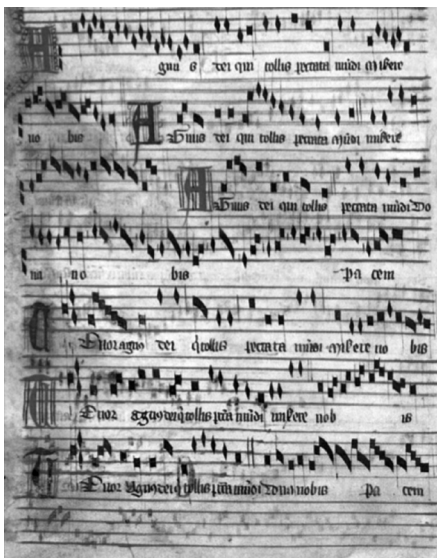 Agnus dei qui tollis peccata mūdi misere
no bis Agnus dei qui tollis peccata mūdi misere
Agnus dei qui tollis peccata mūdi Do
na no bis Pa cem
agnus dei qͥ tollis peccata mūdi misere no bis
Tenor agnus dei qͥ tollis pcͣta mūdi misere nob is
Tenor Agnus dei qͥ tollis pcͣta mūdi Dona nobis Pa cem